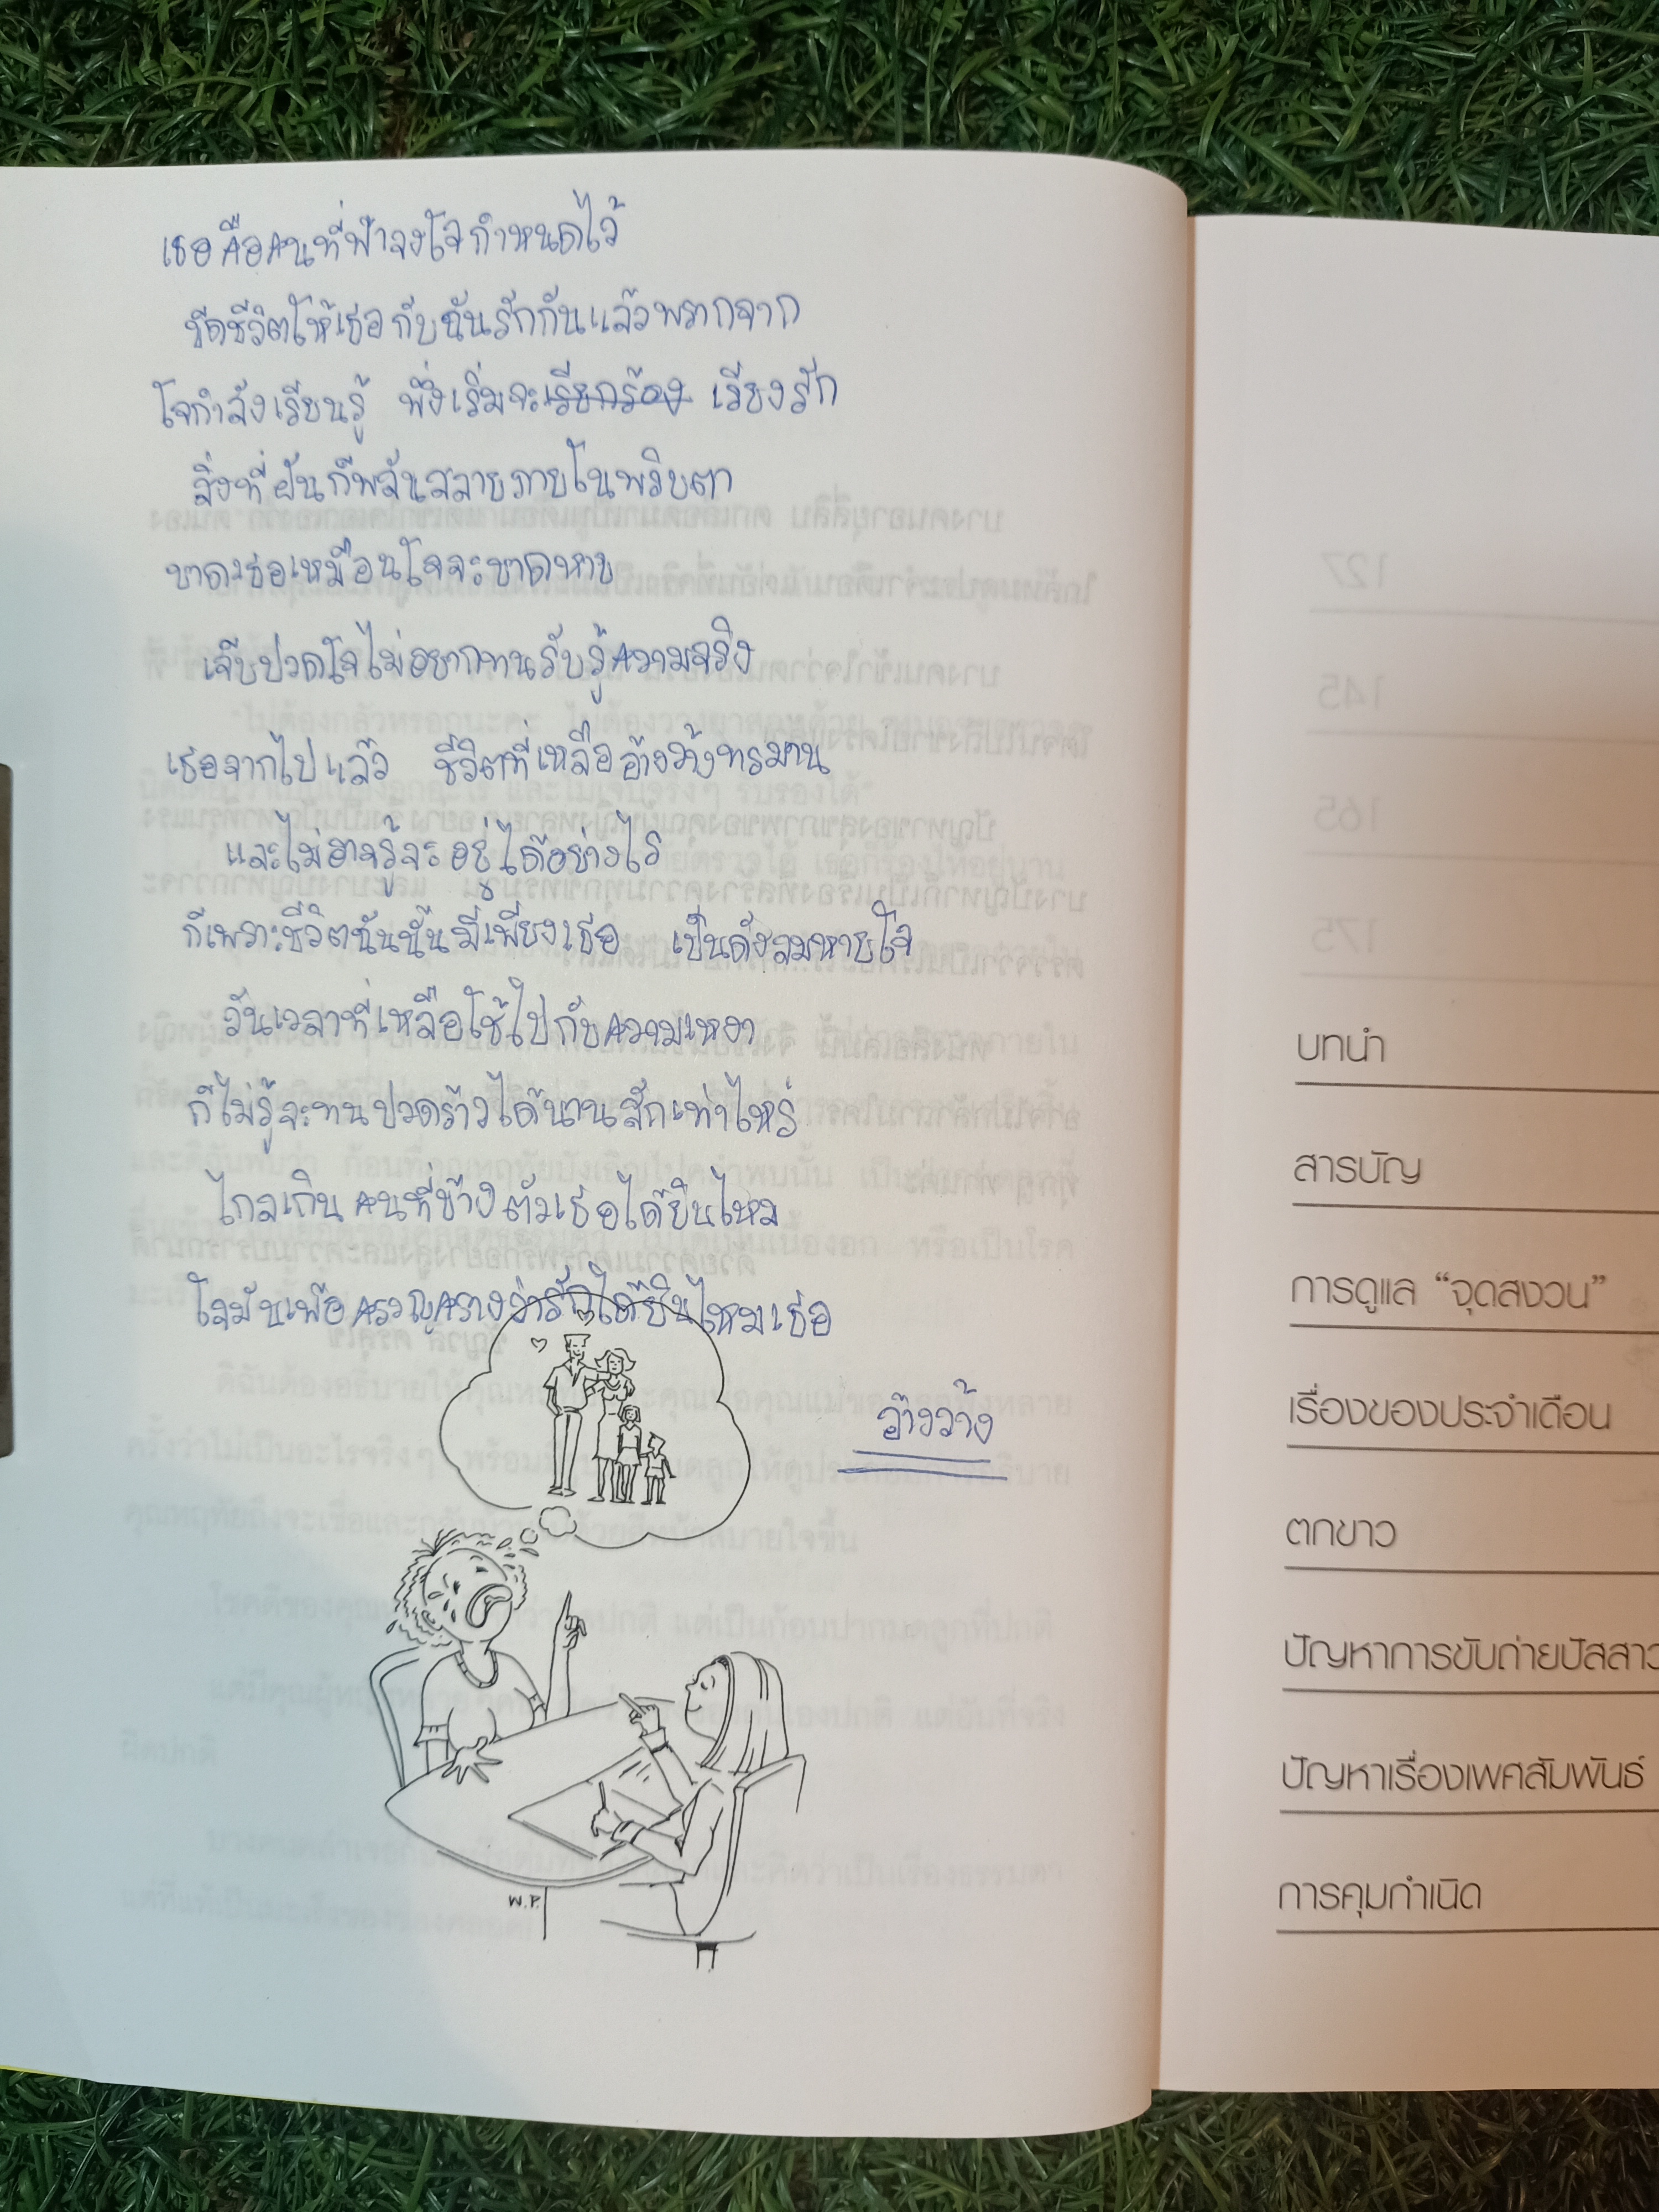 เธอคือคนที่ฟ้าจงใจกำหนดไว้
ขีดชีวิตให้เธอกับฉันรักกันแล้วพรากจาก
ใจกำลังเรียนรู้ พึ่งเริ่มจะเรียกร้อง เรียงรัก
สิ่งที่ฝันก็พลันสลายภายในพริบตา
ขาดเธอเหมือนใจจะขาดหาย
เจ็บปวดใจไม่อยากทนรับรู้ความจริง
เธอจากไปแล้ว ชีวิตที่เหลืออ้างว้างทรมาน
และไม่อาจรู้จะอยู่ได้อย่างไร
ก็เพราะชีวิตฉันนั้นมีเพียงเธอ เป็นดังลมหายใจ
วันเวลาที่เหลือใช้ไปกับความเหงา
ก็ไม่รู้จะทนปวดร้าวได้นานสักเท่าไหร่
ไกลเกินคนที่ข้างตัวเธอได้ยินไหม
ใจมันเพ้อครวญครางว่ารักได้ยินไหมเธอ
อ้างว้าง
W.P.
127
145
165
175
บทนำ
สารบัญ
การดูแล “จุดสงวน”
เรื่องของประจำเดือน
ตกขาว
ปัญหาการขับถ่ายปัสสาว
ปัญหาเรื่องเพศสัมพันธ์
การคุมกำเนิด